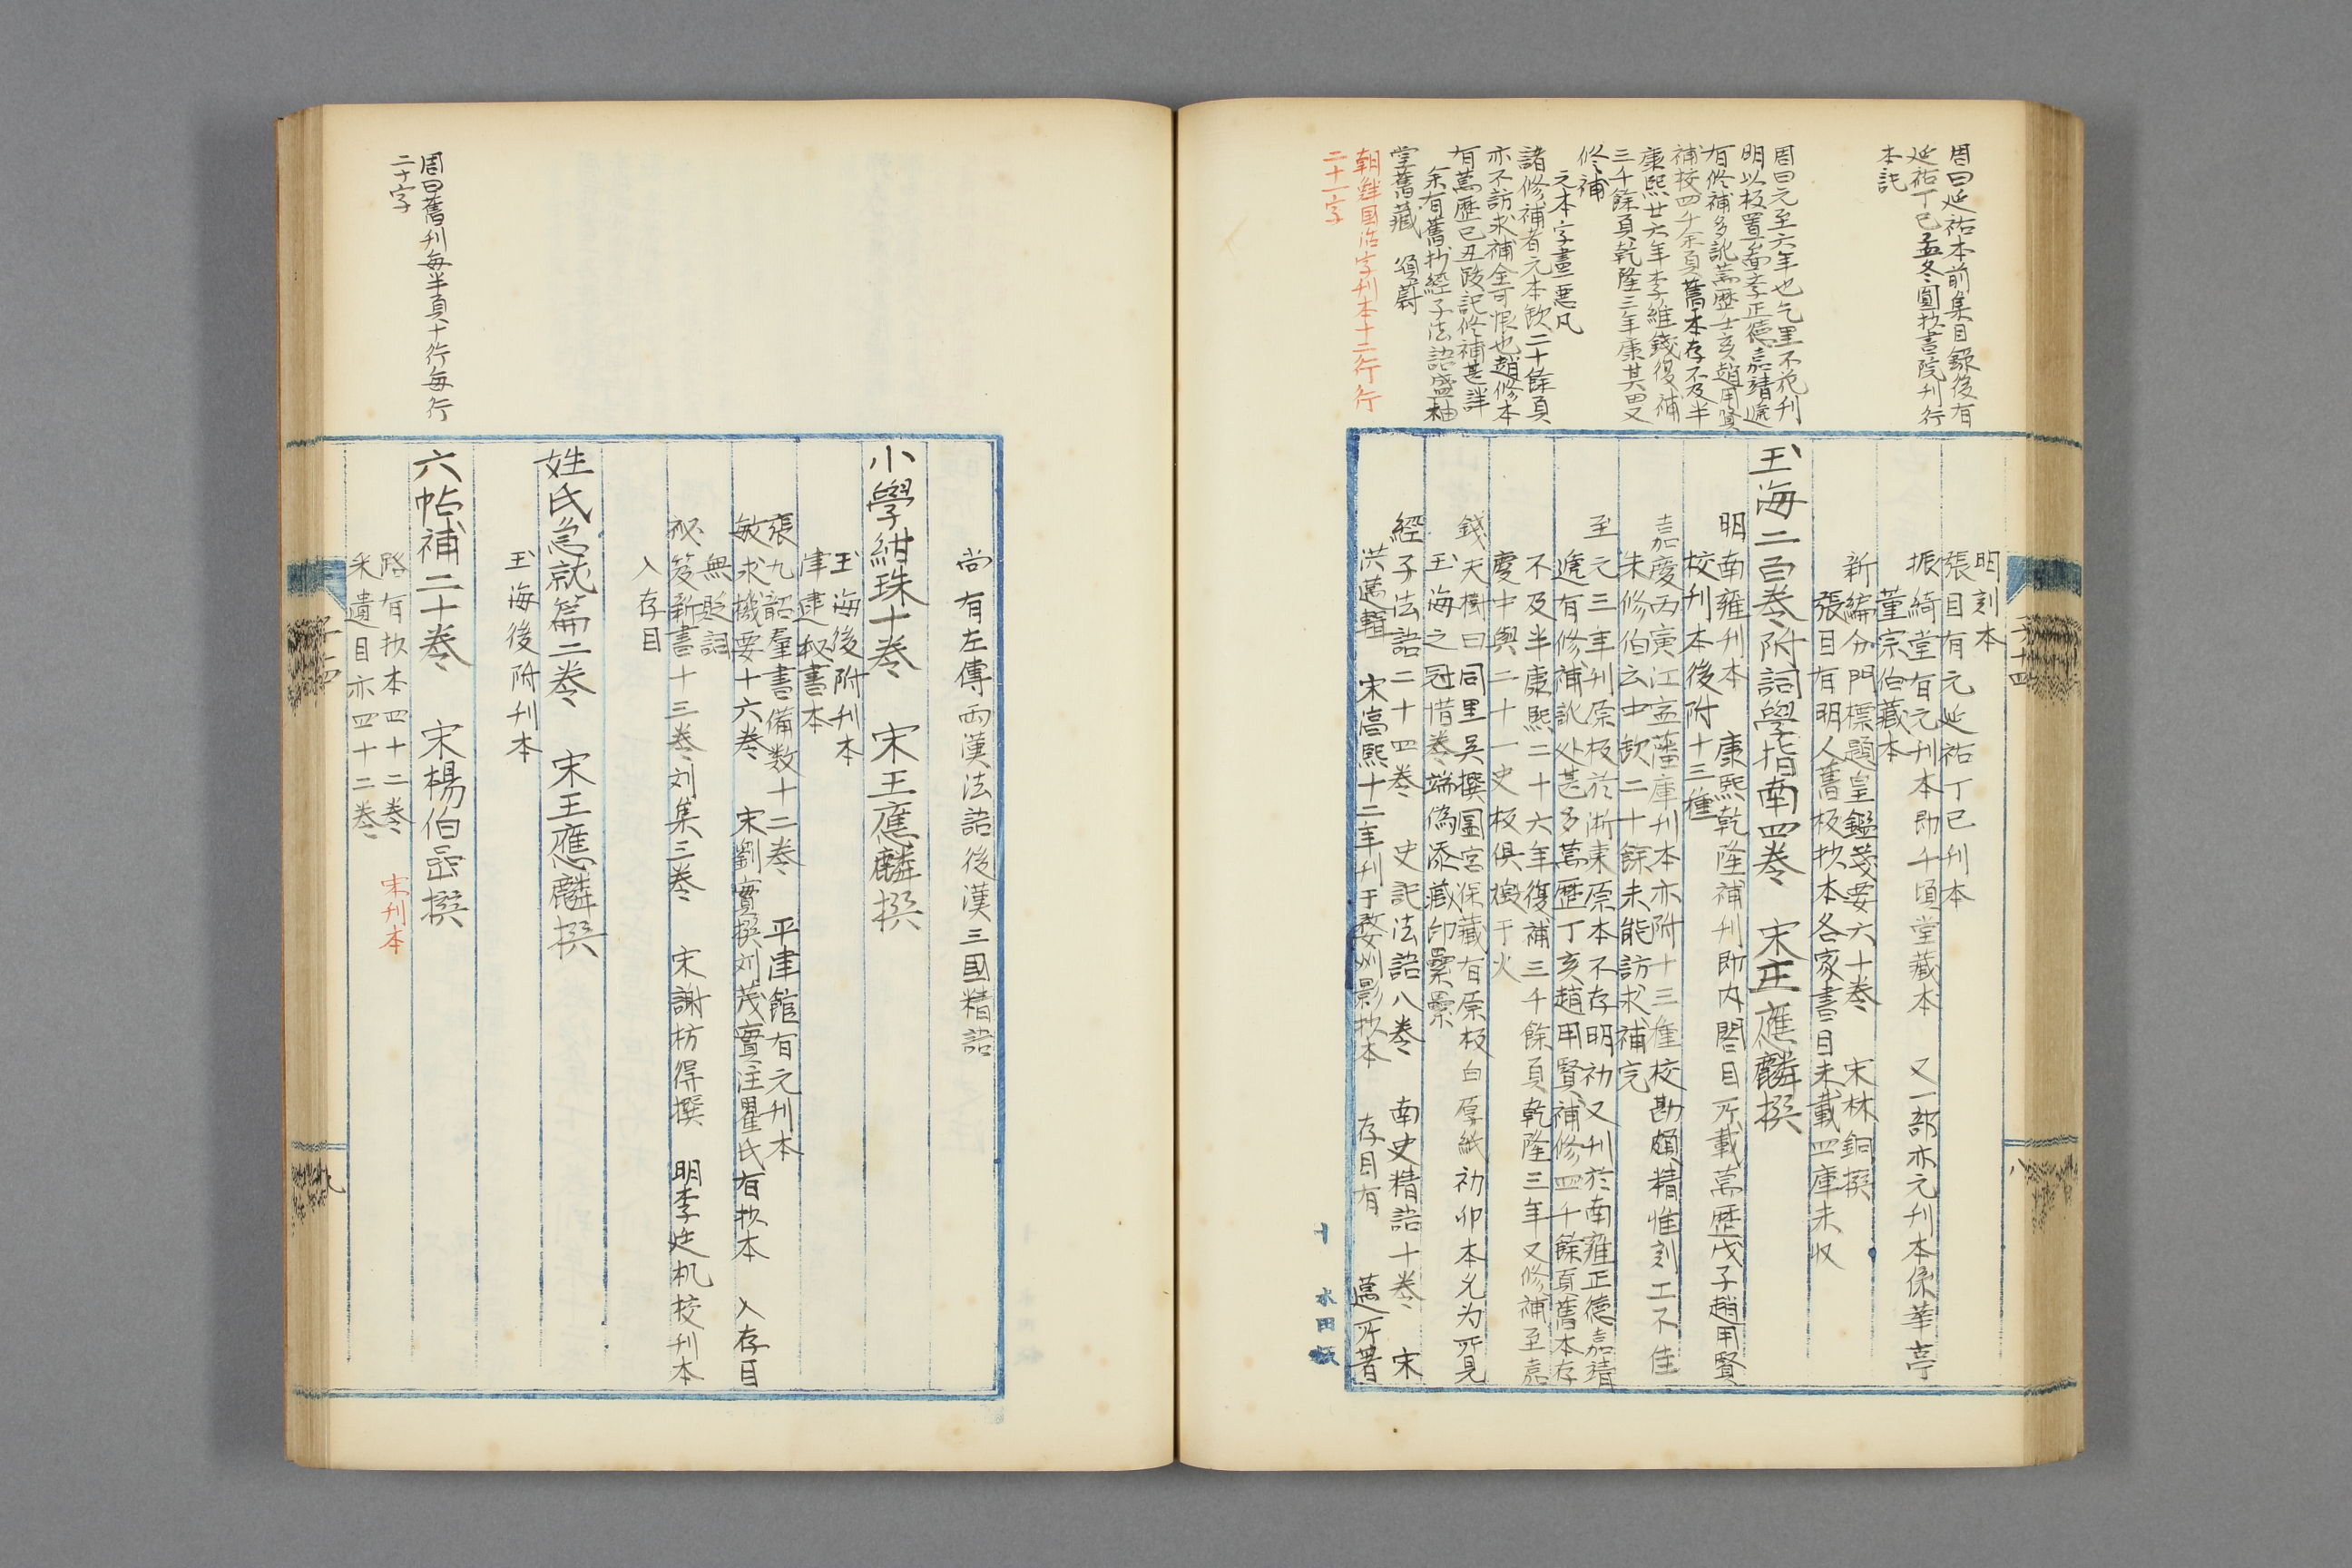 周曰延祐本前集目錄後有
延祐丁巳孟冬圓抄書院刊行
本記
周曰元至六年也乞里不花刊
明以板置南雍正德嘉靖遞
有修補多訛萬歷壬亥趙用賢
補校四千余頁舊本存不及半
康熙廿六年李維錢復補
三千餘頁乾隆三年康其又
修補
元本字畫悪凡
諸修補者元本欽二十餘頁
亦不訪求補全可恨也趙修本
有萬歷己丑跋記修補甚詳
余有舊抄經子法語盛柚
堂舊藏 須蔚
朝鮮国活字刊本十二行行
二十一字
明刻本
張目有元延祐丁巳刊本
振綺堂有元刊本即千頃堂藏本 又一部亦元刊本係華亭
董宗伯藏本
新編分門標題皇鑑箋要六十卷 宋林駉撰
張目有明人舊板抄本各家書目未載四庫未收
玉海二百卷附詞學指南四卷 宋王應麟撰
明南雍刊本 康熙乾隆補刊即内閣目所載萬歷戊子趙用賢
校刊本後附十三種
嘉慶丙寅江寧藩庫刊本亦附十三種校勘頗精惟刻工不佳
朱修伯云中欽二十餘未能訪求補完
至元三年刊原板於浙東原本不存明初又刊於南雍正德嘉靖
遞有修補訛处甚多萬歷丁亥趙用賢補修四千餘頁舊本存
不及半康熙二十六年復補三千餘頁乾隆三年又修補至嘉
慶中與二十一史板俱燬于火
錢天樹曰同里吳撰圃宮保藏有原板白厚紙初印本尤为所見
玉海之冠惜卷端偽添藏印纍纍
經子法語二十四卷 史記法語八卷 南史精語十卷 宋
洪邁輯 宋淳熙十二年刊于婺州影抄本 存目有 邁所著
子十四
八
十 水田板
尚有左傳兩漢法語後漢三國精語
小學紺珠十卷 宋王應麟撰
玉海後附刊本
津逮秘書本
張九韶羣書備数十二卷 平津館有元刊本
敏求機要十六卷 宋劉實撰刘茂實注瞿氏有抄本 入存目
無貶詞
秘笈新書十三卷刘集三卷 宋謝枋得撰 明李廷机校刊本
入存目
姓氏急就篇二卷 宋王應麟撰
玉海後附刊本
六帖補二十卷 宋楊伯嵒撰
路有抄本四十二卷 宋刊本
采遺目亦四十二卷
周曰舊刊每半頁十行每行
二十字
子十四
九